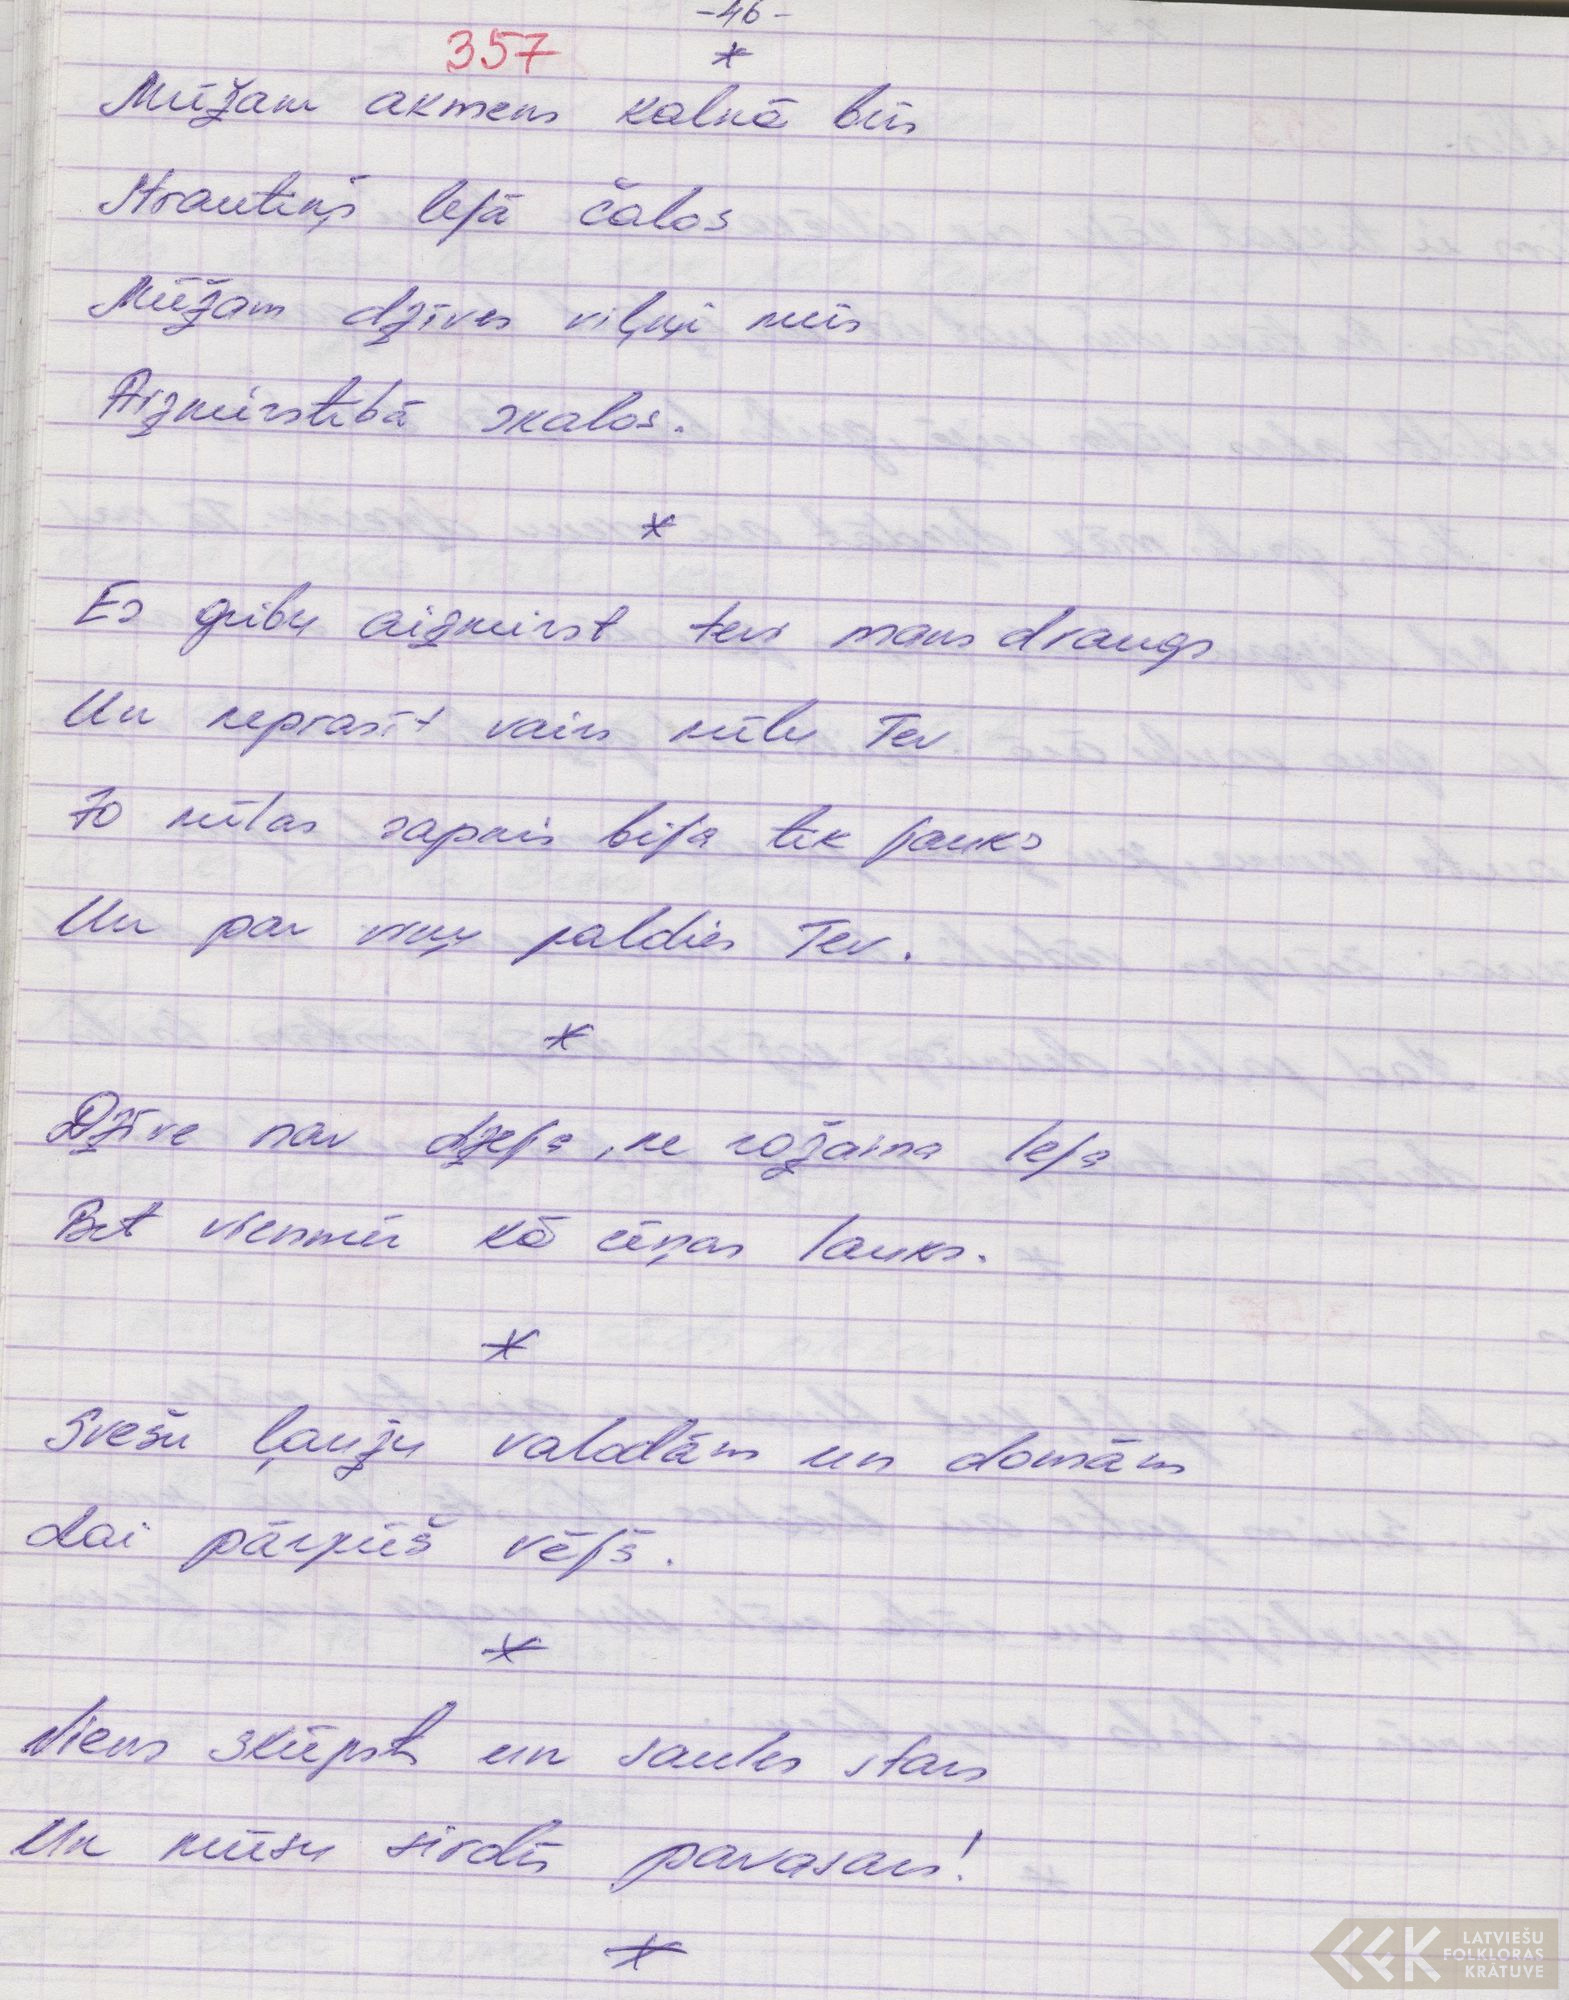 -46-
357 *
Mūžam akmens kalnā būs
Strautiņš lejā čalos
Mūžam dzīves viļņi mūs
Aizmirstībā skalos.
*
Es gribu aizmirst tevi mans draugs
Un neprasīt vairs mīlu Tev
Jo mīlas sapnis bija tik jauks
Un par viņu paldies Tev.
*
Dzīve nav dzeja, ne rožaina leja
Bet vienmēr kā cīņas lauks.
*
Svešu ļaužu valodām un domām
Lai pārpūš vējš.
*
Viens skūpsts un saules stars
Un mūsu sirdīs pavasars!
*
LATVIEŠU
FOLKLORAS
KRĀTUVE